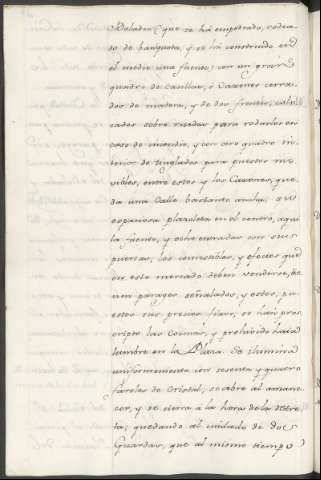 Volador, que se há empedrado, rodea-
do de banqueta, y se há construido en
el medio una fuente; con un gran
quadro de casillas, ó Caxones cerra-
dos de madera, y de dos frentes, colo-
cados sobre ruedas para rodarlos en
caso de incendio, y con otro quadro in-
terior de tinglados para puestos mo-
vibles, entre estos y los Caxones, que-
da una Calle bastante ancha, que
espaciosa plazuela en el centro, aqui
la fuente, y ocho entradas con sus
puertas, los comestibles, y efectos que
en este mercado deben venderse,
en parages señalados, y estos, pu-
estos sus precios fixos, se han pros-
cripto las Coimas, y prohivido hacia
lumbre en la Plaza. Se ilumina
uniformemente con sesenta y quatro
faroles de Cristal, se abre al amane-
cer, y se cierra a la hora de la Retre-
ta, quedando al cuidado de dos
Guardas, que al mismo tiempo